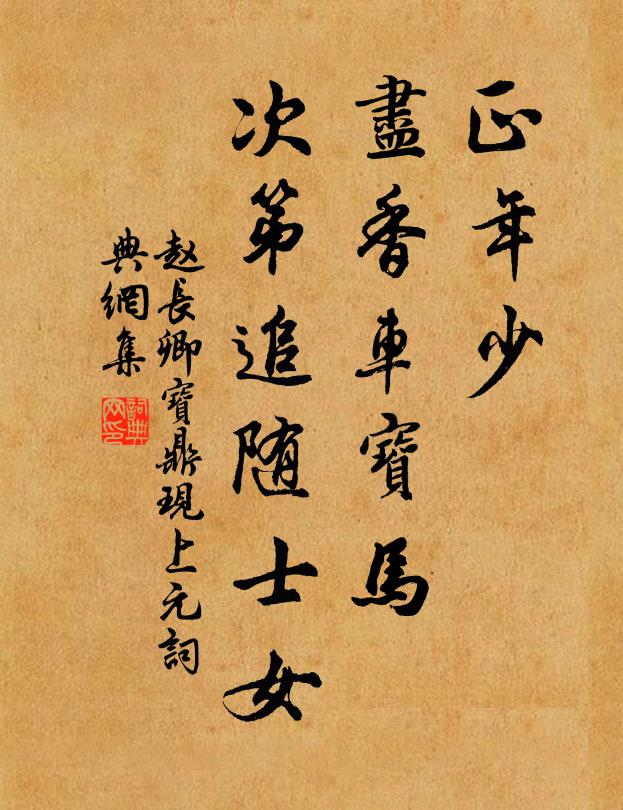 正年少
盡香車寶馬
次第追随士女
赵長卿寶鼎現上元詞
典網集
詞典
网印